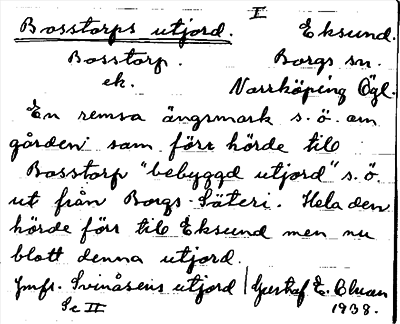 I
Bosstorps utjord. Eksund.
Bosstorp. Borgs sn.
ek. Norrköping Ögl.
En remsa ängsmark s.ö. om
gården som förr hörde til
Bosstorp "bebyggd utjord" s.ö.
ut från Borgs Säteri. Hela den
hörde förr til Eksund men nu
blott denna utjord.
Jmfr. Svinåsens utjord | Gustaf E. Bluan
Se II 1938.